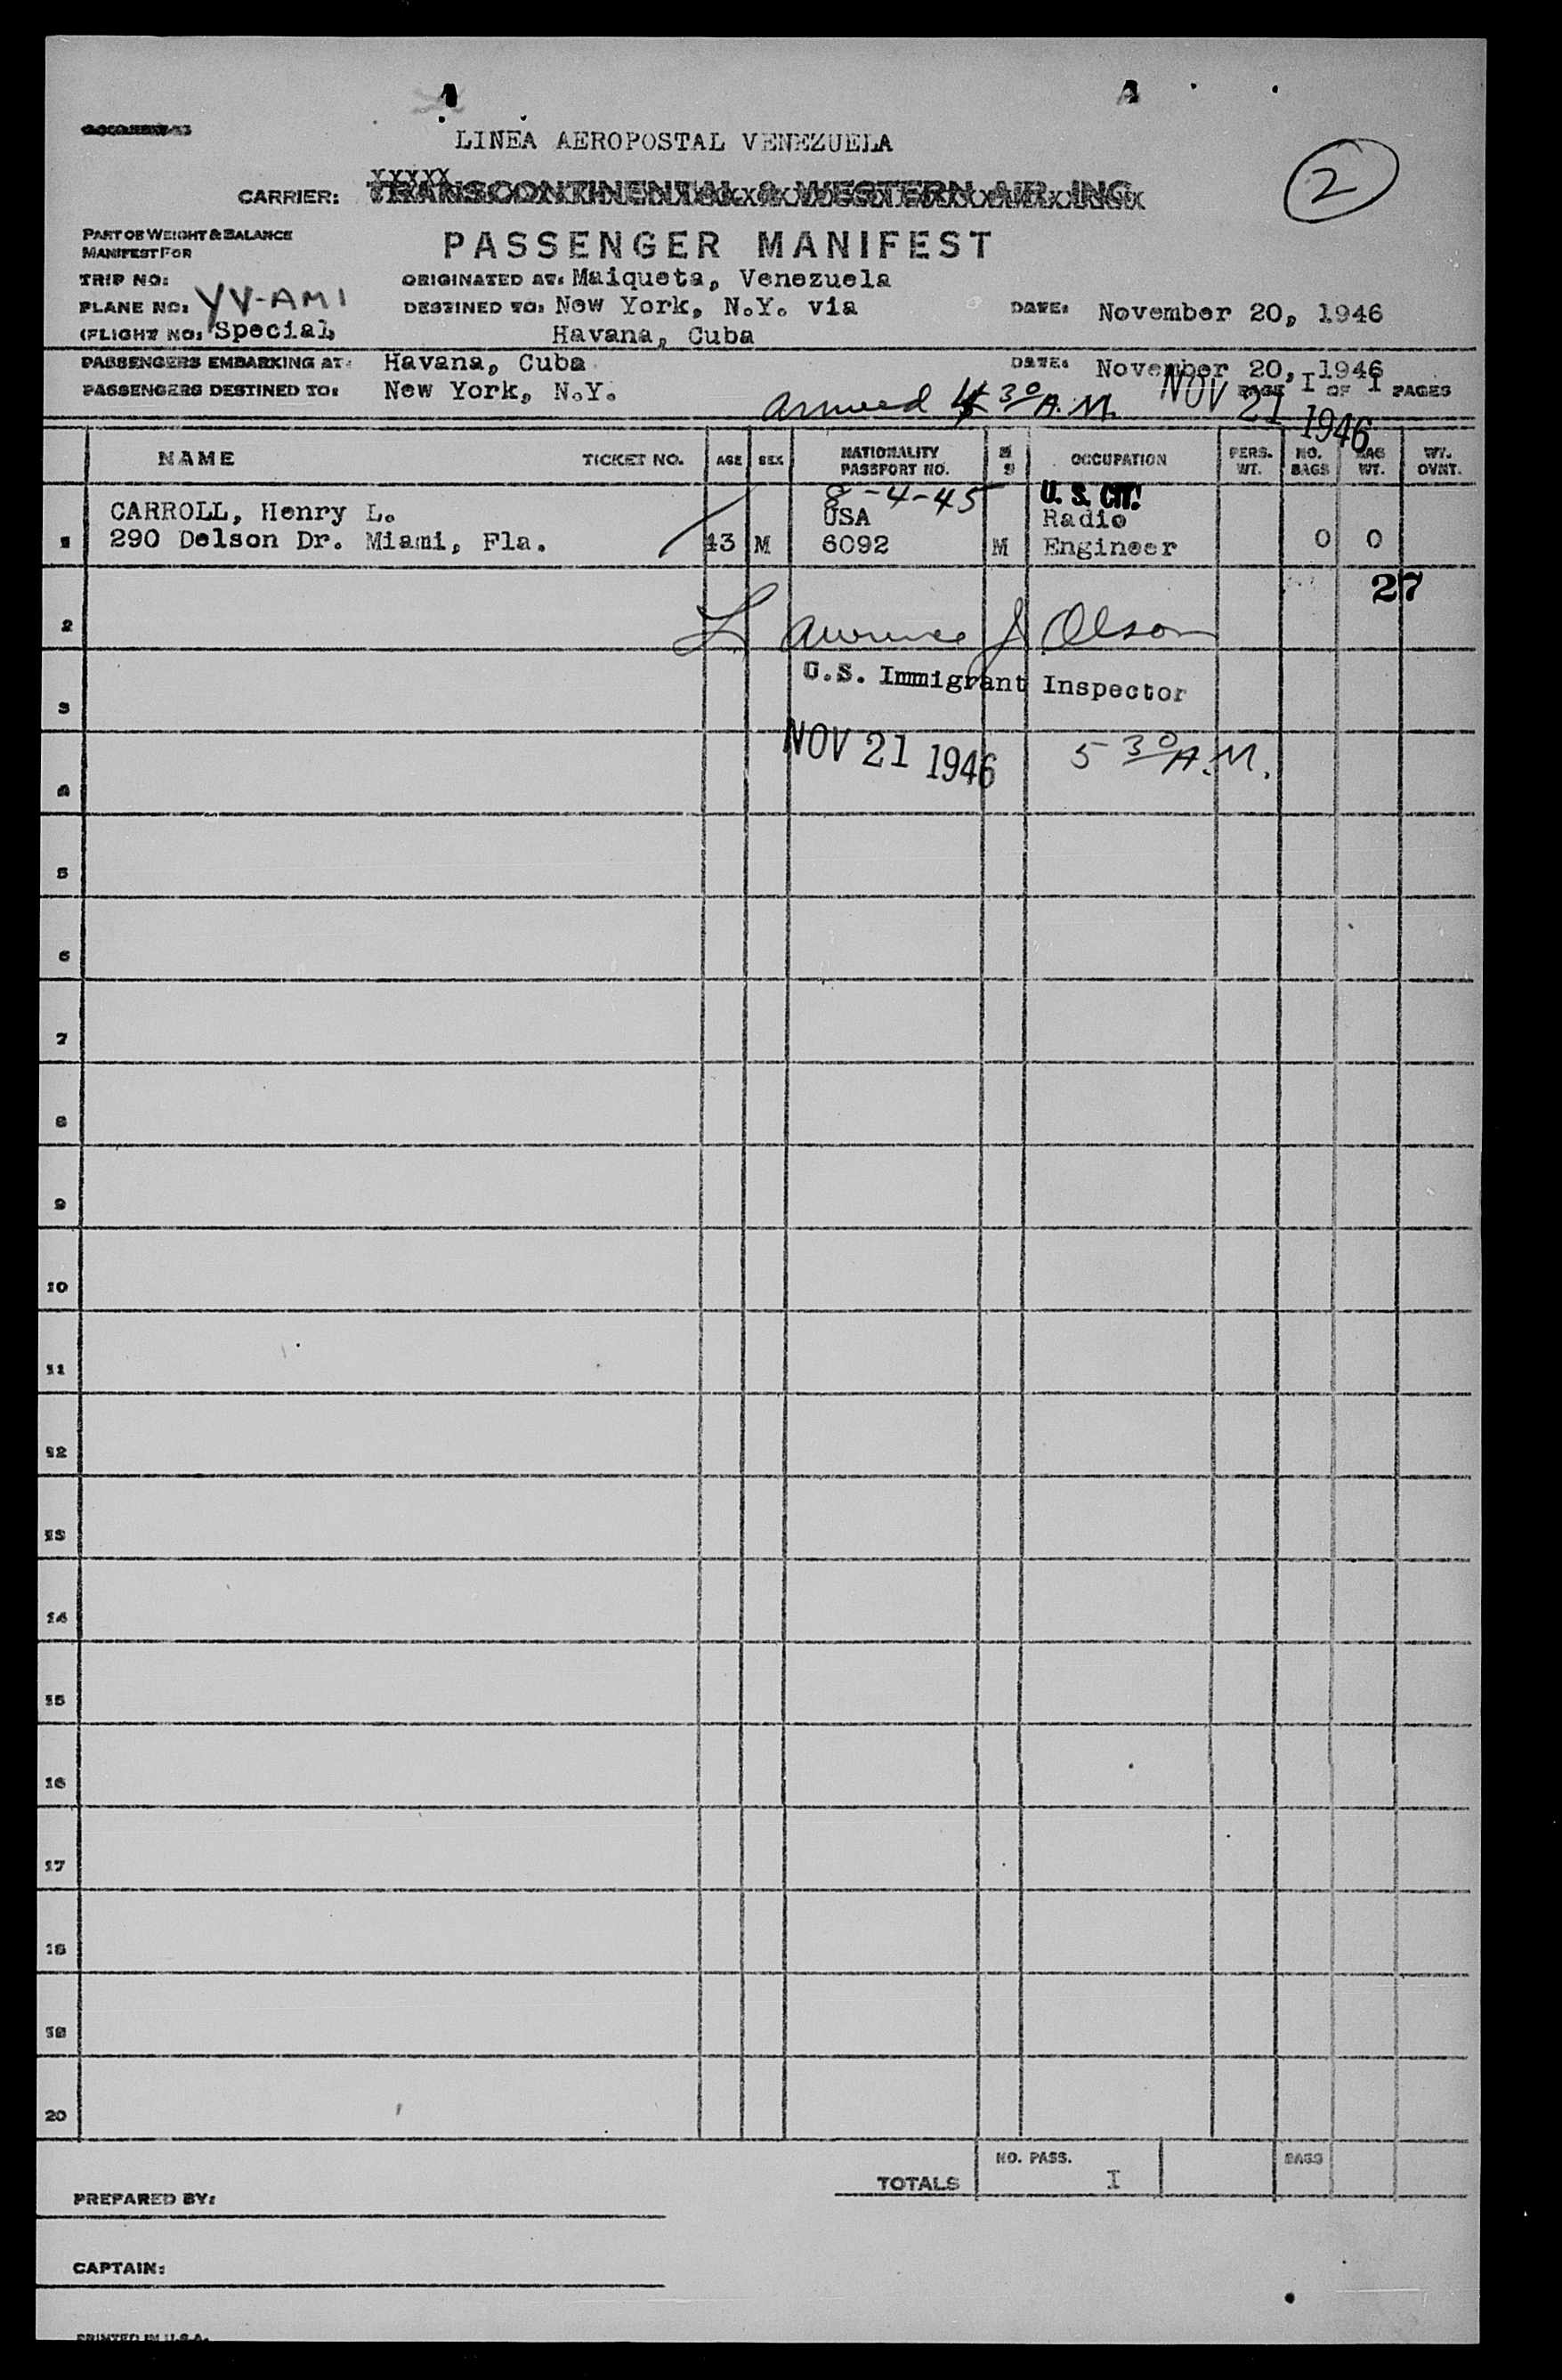 LINEA AEROPOSTAL VENEZUELA
2
XXXXX
CARRIER: TRANSCONTINENTAL & WESTERN AIR, INC.
PART OF WEIGHT & BALANCE
MANIFEST FOR
PASSENGER MANIFEST
TRIP NO:
ORIGINATED AT: Maiqueta, Venezuela
PLANE NO: YV-AMI
DESTINED TO: New York, N.Y. via
DATE: November 20, 1946
(FLIGHT NO: Special)
Havana, Cuba
PASSENGERS EMBARKING AT: Havana, Cuba
DATE: November 20, 1946
PASSENGERS DESTINED TO: New York, N.Y.
PAGE I OF I PAGES
arrived 4 30 A.M. NOV 21 1946
NAME TICKET NO. AGE SEX NATIONALITY PASSPORT NO. M S OCCUPATION PERS. WT. NO. BAGS BAG WT. WT. OVNT.
8-4-45 U. S. CIT.
CARROLL, Henry L. USA Radio
1 290 Delson Dr. Miami, Fla. 43 M 6092 M Engineer 0 0
27
2 Lawrence J Olson
U.S. Immigrant Inspector
3
NOV 21 1946 5 30 A.M.
4
5
6
7
8
9
10
11
12
13
14
15
16
17
18
19
20
NO. PASS. BAGS
TOTALS I
PREPARED BY:
CAPTAIN:
PRINTED IN U.S.A.